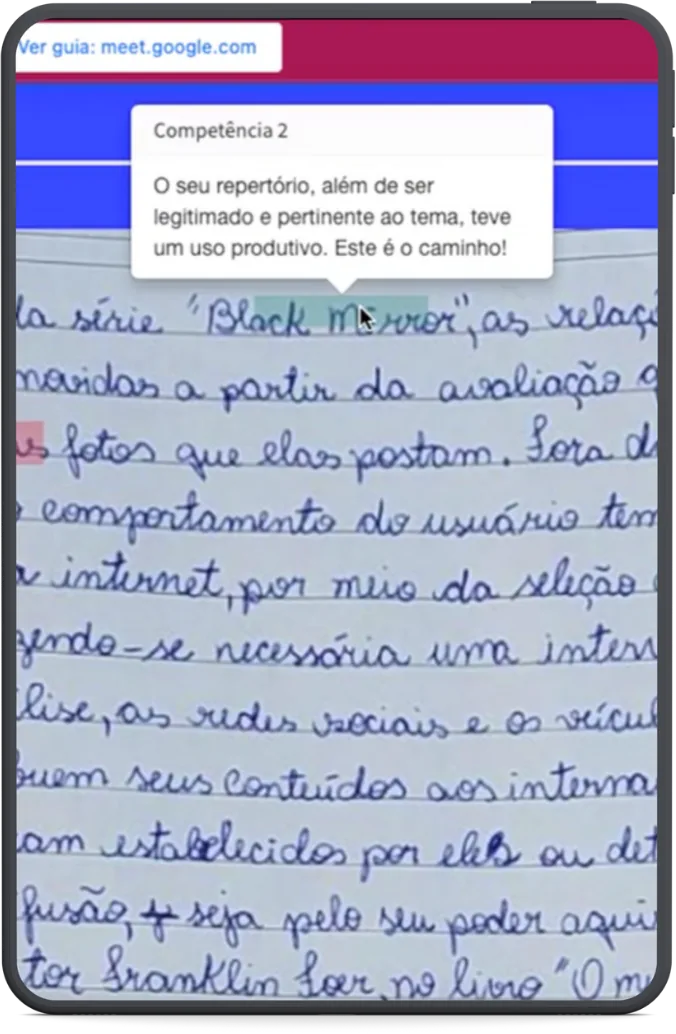 Ver guia: meet.google.com
Competência 2
O seu repertório, além de ser
legitimado e pertinente ao tema, teve
um uso produtivo. Este é o caminho!
la série "Black Mirror", as relaç
movidas a partir da avaliação
fotos que elas postam. Fora d
comportamento do usuário tem
a internet, por meio da seleção
zendo-se necessária uma inter
lise, as redes sociais e os veícul
buem seus conteúdos aos interna
cam estabelecidos por eles ou det
fusão, seja pelo seu poder aqui
tor Franklin Foer, no livro "O m